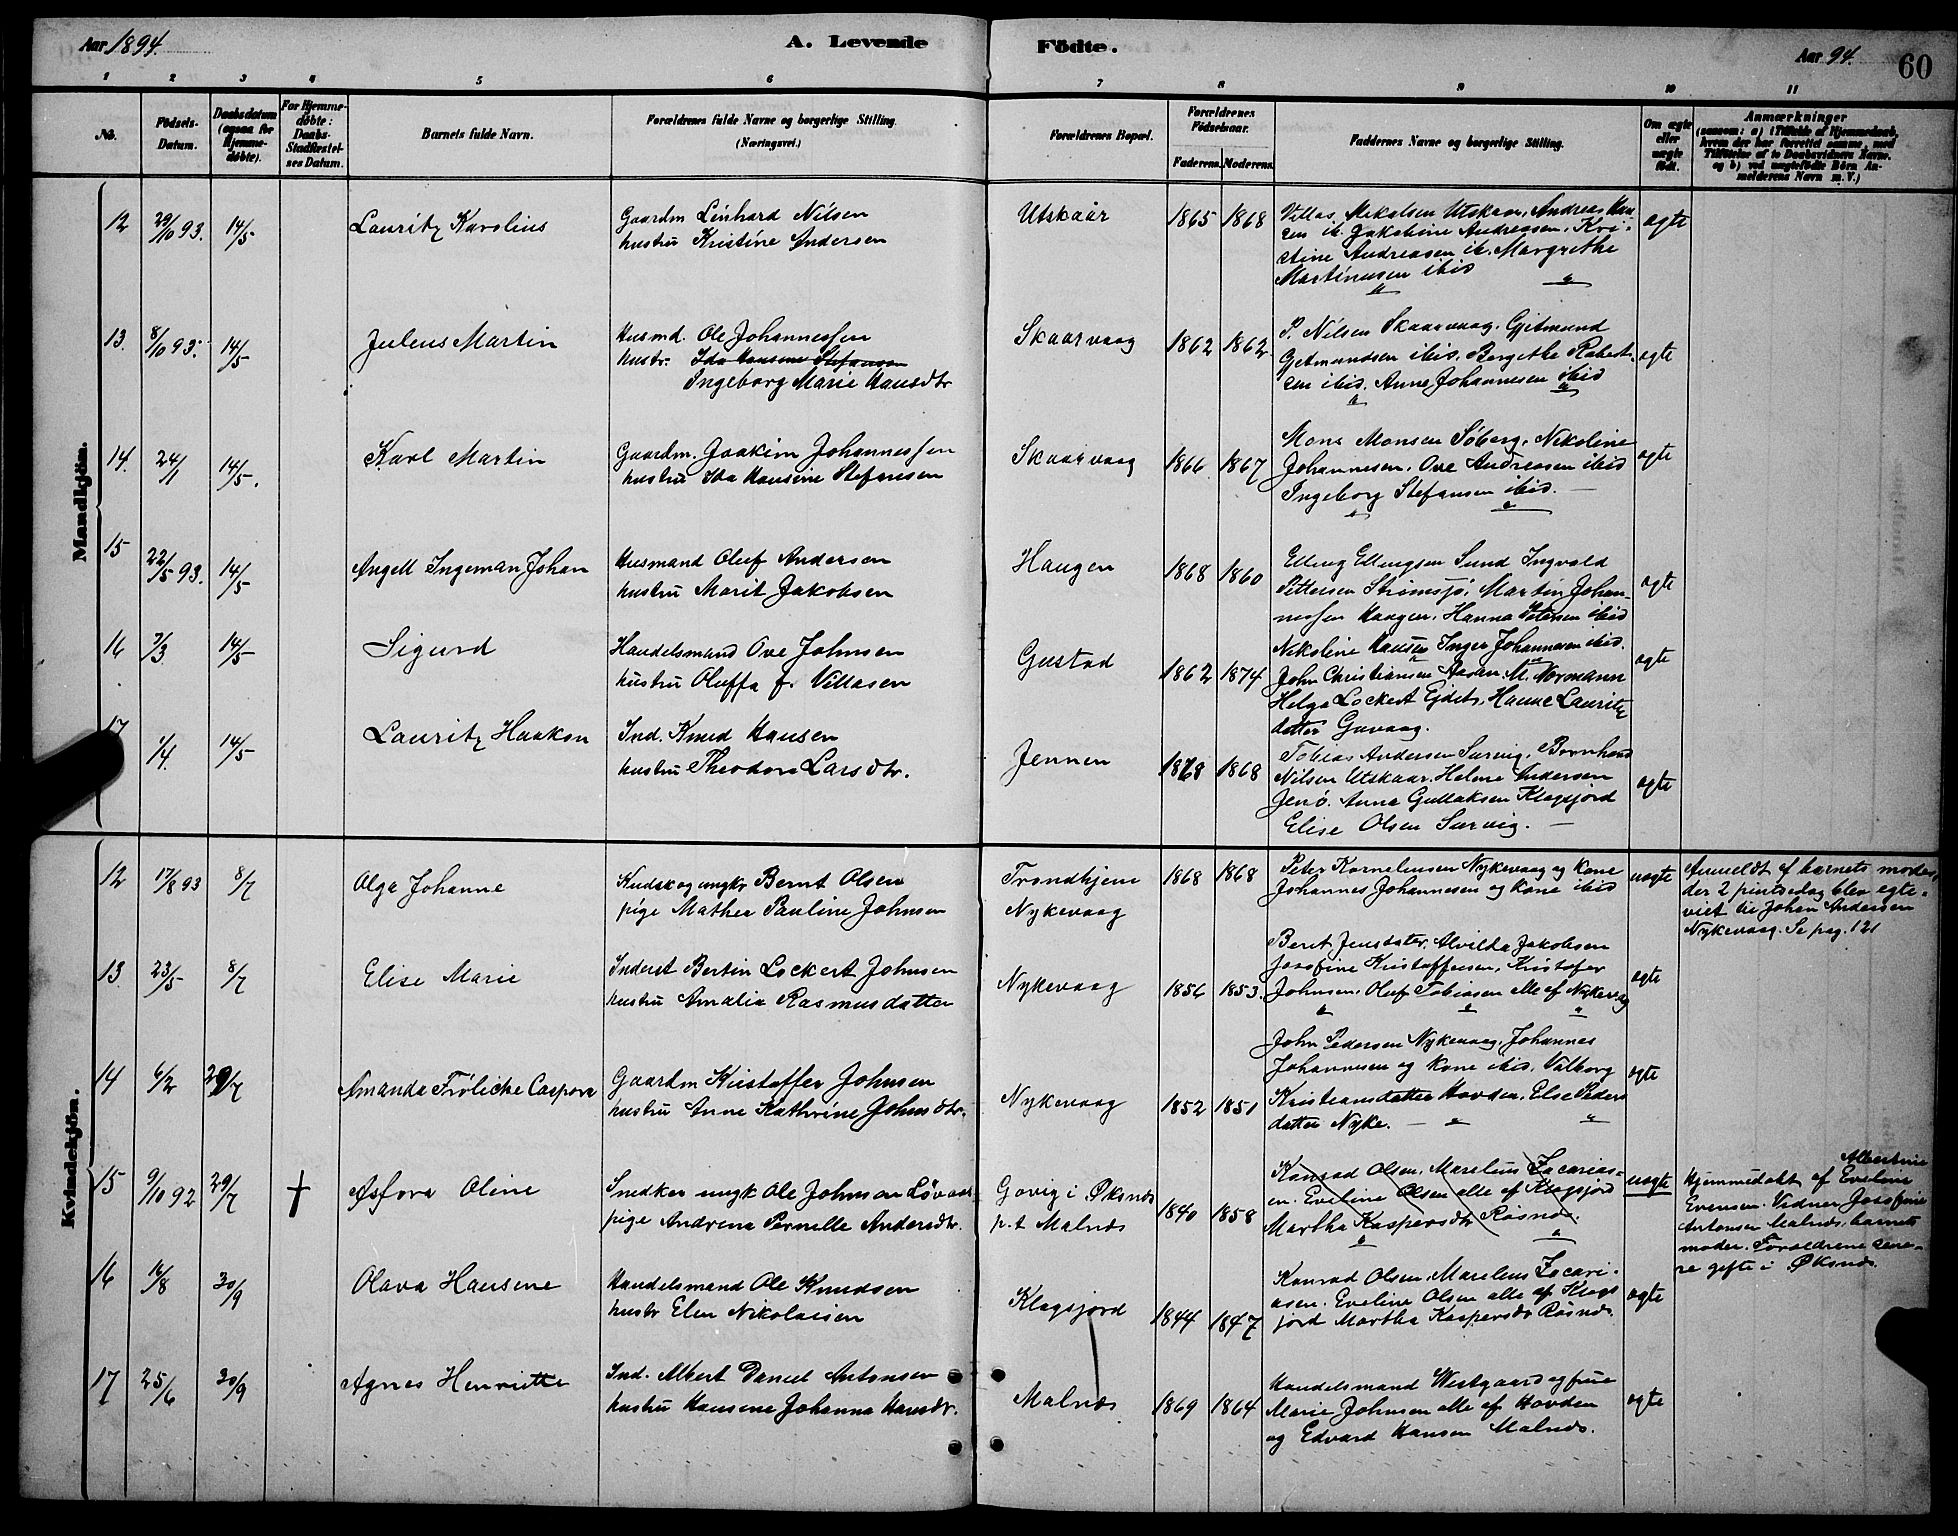 Aar 1894.
A. Levende Födte.
Aar 94.
60
1 2 3 4 5 6 7 8 9 10 11
No.
Födsels-Datum.
Daabsdatum (ogsaa for Hjemme-döbte).
For Hjemme-döbte: Daabs-Stadfæstel-ses Datum.
Barnets fulde Navn.
Forældrenes fulde Navne og borgerlige Stilling. (Næringsvei.)
Forældrenes Bopæl.
Forældrenes Födselsaar.
Faderens. Moderens.
Faddernes Navne og borgerlige Stilling.
Om ægte eller uægte född.
Anmærkninger
(saasom: a) i Tilfælde af Hjemmedaab, hvem der har forrettet samme, med Tilföielse af to Daabsvidners Navne, og b) ved uægtefödte Börn An-melderens Navn m. V.)
Mandkjön.
12 29/10 93. 14/5 Lauritz Karolius
Gaardm Linhard Nilsen
hustru Kristine Andersen
Utskaar 1865 1868
Villas Mikalsen Utskaar, Andreas Han-
sen ib. Jakobine Andreasen, Kri-
stine Andreasen ib. Margrethe
Martinusen ibid
ægte
13. 8/10 93. 14/5 Julius Martin
Husmd. Ole Johannessen
hustr. Ida Hansine Stefansen
Ingeborg Marie Hansdtr
Skaarvaag 1862 1862
P. Nilsen Skaarvaag, Gjetmund
Gjetmundsen ibid, Bergethe Robert-
sen ibid. Anne Johannesen ibid
ægte
14. 24/1 14/5. Karl Martin
Gaardm. Joakim Johannessen
hustru Ida Hansine Stefansen
Skaarvaag 1866 1867
Mons Monsen Söberg, Nikoline
Johannesen, Ove Andreasen ibid
Ingeborg Stefansen ibid. —
ægte
15 22/5 93. 14/5 Angell Ingeman Johan
Husmand Oluf Andersen
hustru Marit Jakobsen
Haugen 1868 1860
Elling Ellingsen Sund Ingvald
Pettersen Strømsjö, Martin Johan-
nessen Haagen, Hanna Petersen ibid
ægte
16 7/3 14/5 Sigurd
Handelsmand Ove Johnsen
hustru Oluffa f. Villasen
Gustad 1862 1874
Nikoline Hansen Inger Johannesen ibid.
John Christiansen M. Normann
Helga Lockert Hanne Lauritz
datter Gavaag.
ægte
17 1/4. 14/5 Lauritz Haakon
Ind. Knud Hansen
hustru Theodora Larsdtr.
Jennen 1868 1868
Tobias Andersen Survig, Bernhard
Nilsen Utskaar, Helene Andersen
Jenö. Anna Gullaksen Klogsjord
Elise Olsen Survig. —
ægte
Kvindekjön.
12 17/8 93 8/7 Olga Johanne
Kudsk og ungkr Bernt Olsen
pige Mathea Pauline Johnsen
Trondhjem
Nykevaag
1868 1868
Peter Korneliusen Nykevaag og kone
Johannes Johannesen og kone ibid
uægte
Anmeldt af barnets moder,
der 2 pintsedag blev egte-
viet til Johan Andersen
Nykevaag. Se pag. 121
13 23/5 8/7 Elise Marie
Inderst Bertin Lockert Johnsen
hustru Amalia Rasmusdatter
Nykevaag 1856 1853.
Berit Jensdater, Alvilda Jakobsen
Josefine Kristoffersen, Kristofer
Johnsen, Oluf Tobiasen alle af Nykevaag
ægte
14 6/2 29/7 Amanda Fröliche Caspara
Gaardm Kristoffer Johnsen
hustru Anne Kathrine Johnsdtr.
Nykevaag 1852 1851
John Pedersen Nykevaag, Johannes
Johannesen og kone ibid, Valborg
Kristiansdatter Hovden, Else Peders
datter Nyke. —
ægte
15 9/10 92 29/7 † Asfora Oline
Snedker ungk Ole Johnson Lövaas
pige Andrena Pernille Andersdtr.
Govig i Øksnæs
p.t Malnæs
1840 1858
Konrad Olsen, Marelius Zacarias-
en. Eveline Olsen alle af Klogsjord
Martha Kaspersdtr Rösnæs.
uægte
Albertine
Hjemmedøbt af Eveline
Evensen. Vidner Josefine
Antonsen Malnæs, barnets
moder. Forældrene sene-
re gifte i Øksnæs.
16 16/8 30/9 Olava Hansene
Handelsmand Ole Knudsen
hustr Elen Nikolaisen
Klogsjord 1844 1847
Konrad Olsen, Marelius Zacari-
asen. Eveline Olsen alle af Klogs
jord Martha Kaspersdr Rösnæs.
ægte
17 25/6 30/9 Agnes Henriette
Ind. Albert Daniel Antonsen
hustru Hansena Johanna Hansdr.
Malnæs 1869 1864
Handelsmand Westgaard og frue
Marie Johnsen alle af Hovden
og Edvard Hansen Malnæs.
ægte